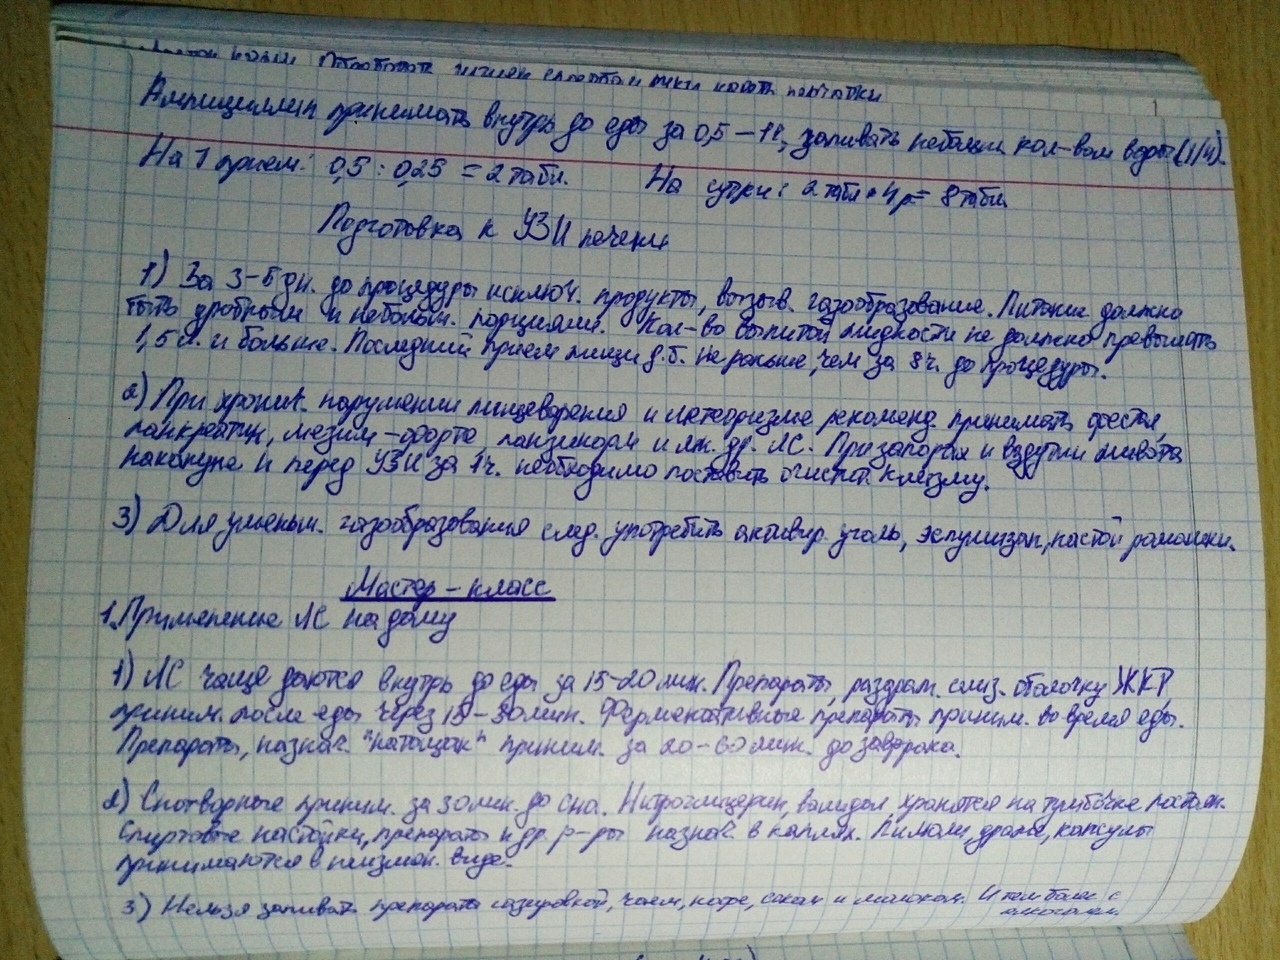 Обработать гигиен. способом руки надеть перчатки
Ампициллин принимать внутрь до еды за 0,5 – 1ч, запивать небольш. кол-вом воды (1/4).
На 1 прием: 0,5 : 0,25 = 2 табл. На сутки: 2 табл • 4р = 8 табл.
Подготовка к УЗИ печени
1) За 3-5 дн. до процедуры исключ. продукты, вызыв. газообразование. Питание должно
быть дробным и небольш. порциями. Кол-во выпитой жидкости не должно превышать
1,5 л. и больше. Последний прием пищи д.б. не раньше, чем за 8 ч. до процедуры.
2) При хронич. нарушении пищеварения и метеоризме рекоменд. принимать фестал,
панкреатин, мезим-форте панзинорм и мн. др. ЛС. При запорах и вздутии живота
накануне и перед УЗИ за 1 ч. необходимо поставить очистит. клизму.
3) Для уменьш. газообразования след. употребить активир. уголь, эспумизан, настой ромашки.
Мастер – класс
1. Применение ЛС на дому
1) ЛС чаще даются внутрь до еды за 15-20 мин. Препараты, раздраж. слиз. оболочку ЖКТ
приним. после еды через 15 – 30 мин. Ферментативные препараты приним. во время еды.
Препараты, назнач. "натощак" приним. за 20-60 мин. до завтрака.
2) Снотворные приним. за 30 мин. до сна. Нитроглицерин, валидол хранятся на тумбочке
Спиртовые настойки, препараты и др. р-ры назнач. в каплях. Пилюли, драже, капсулы
принимаются в неизмен. виде.
3) Нельзя запивать препараты газировкой, чаем, кофе, соком и молоком. И тем более с
алкоголем.